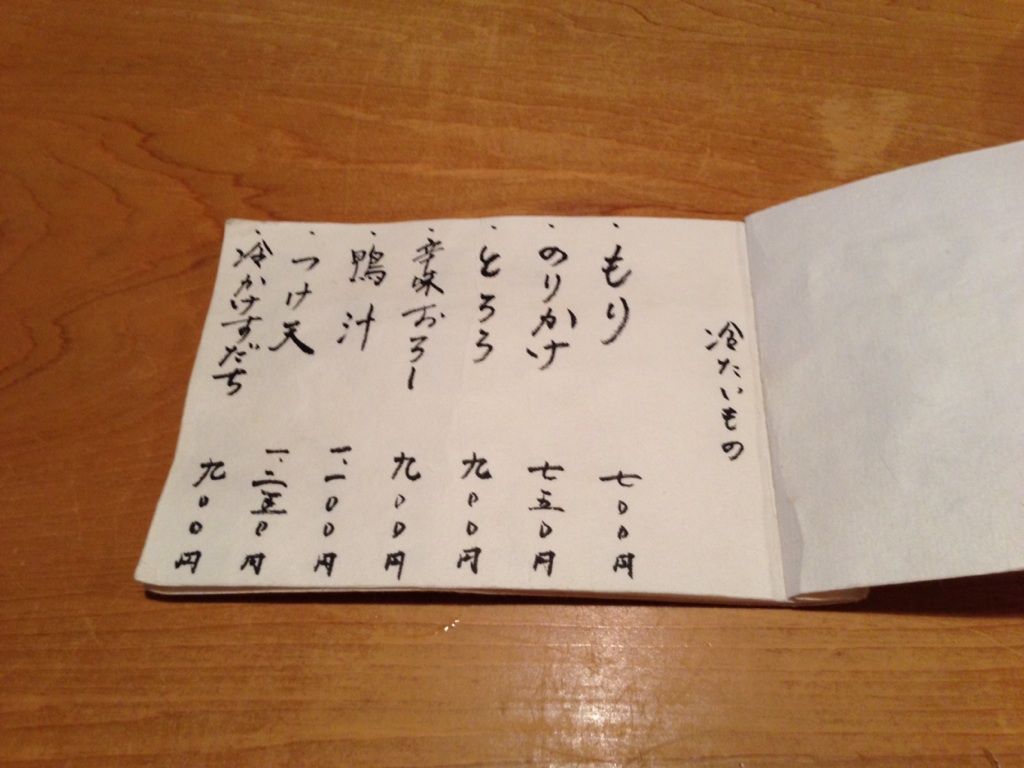 冷たいもの
・もり 七〇〇円
・のりかけ 七五〇円
・とろろ 九〇〇円
・辛味おろし 九〇〇円
・鴨汁 一、一〇〇円
・つけ天 一、二五〇円
・冷かけすだち 九〇〇円